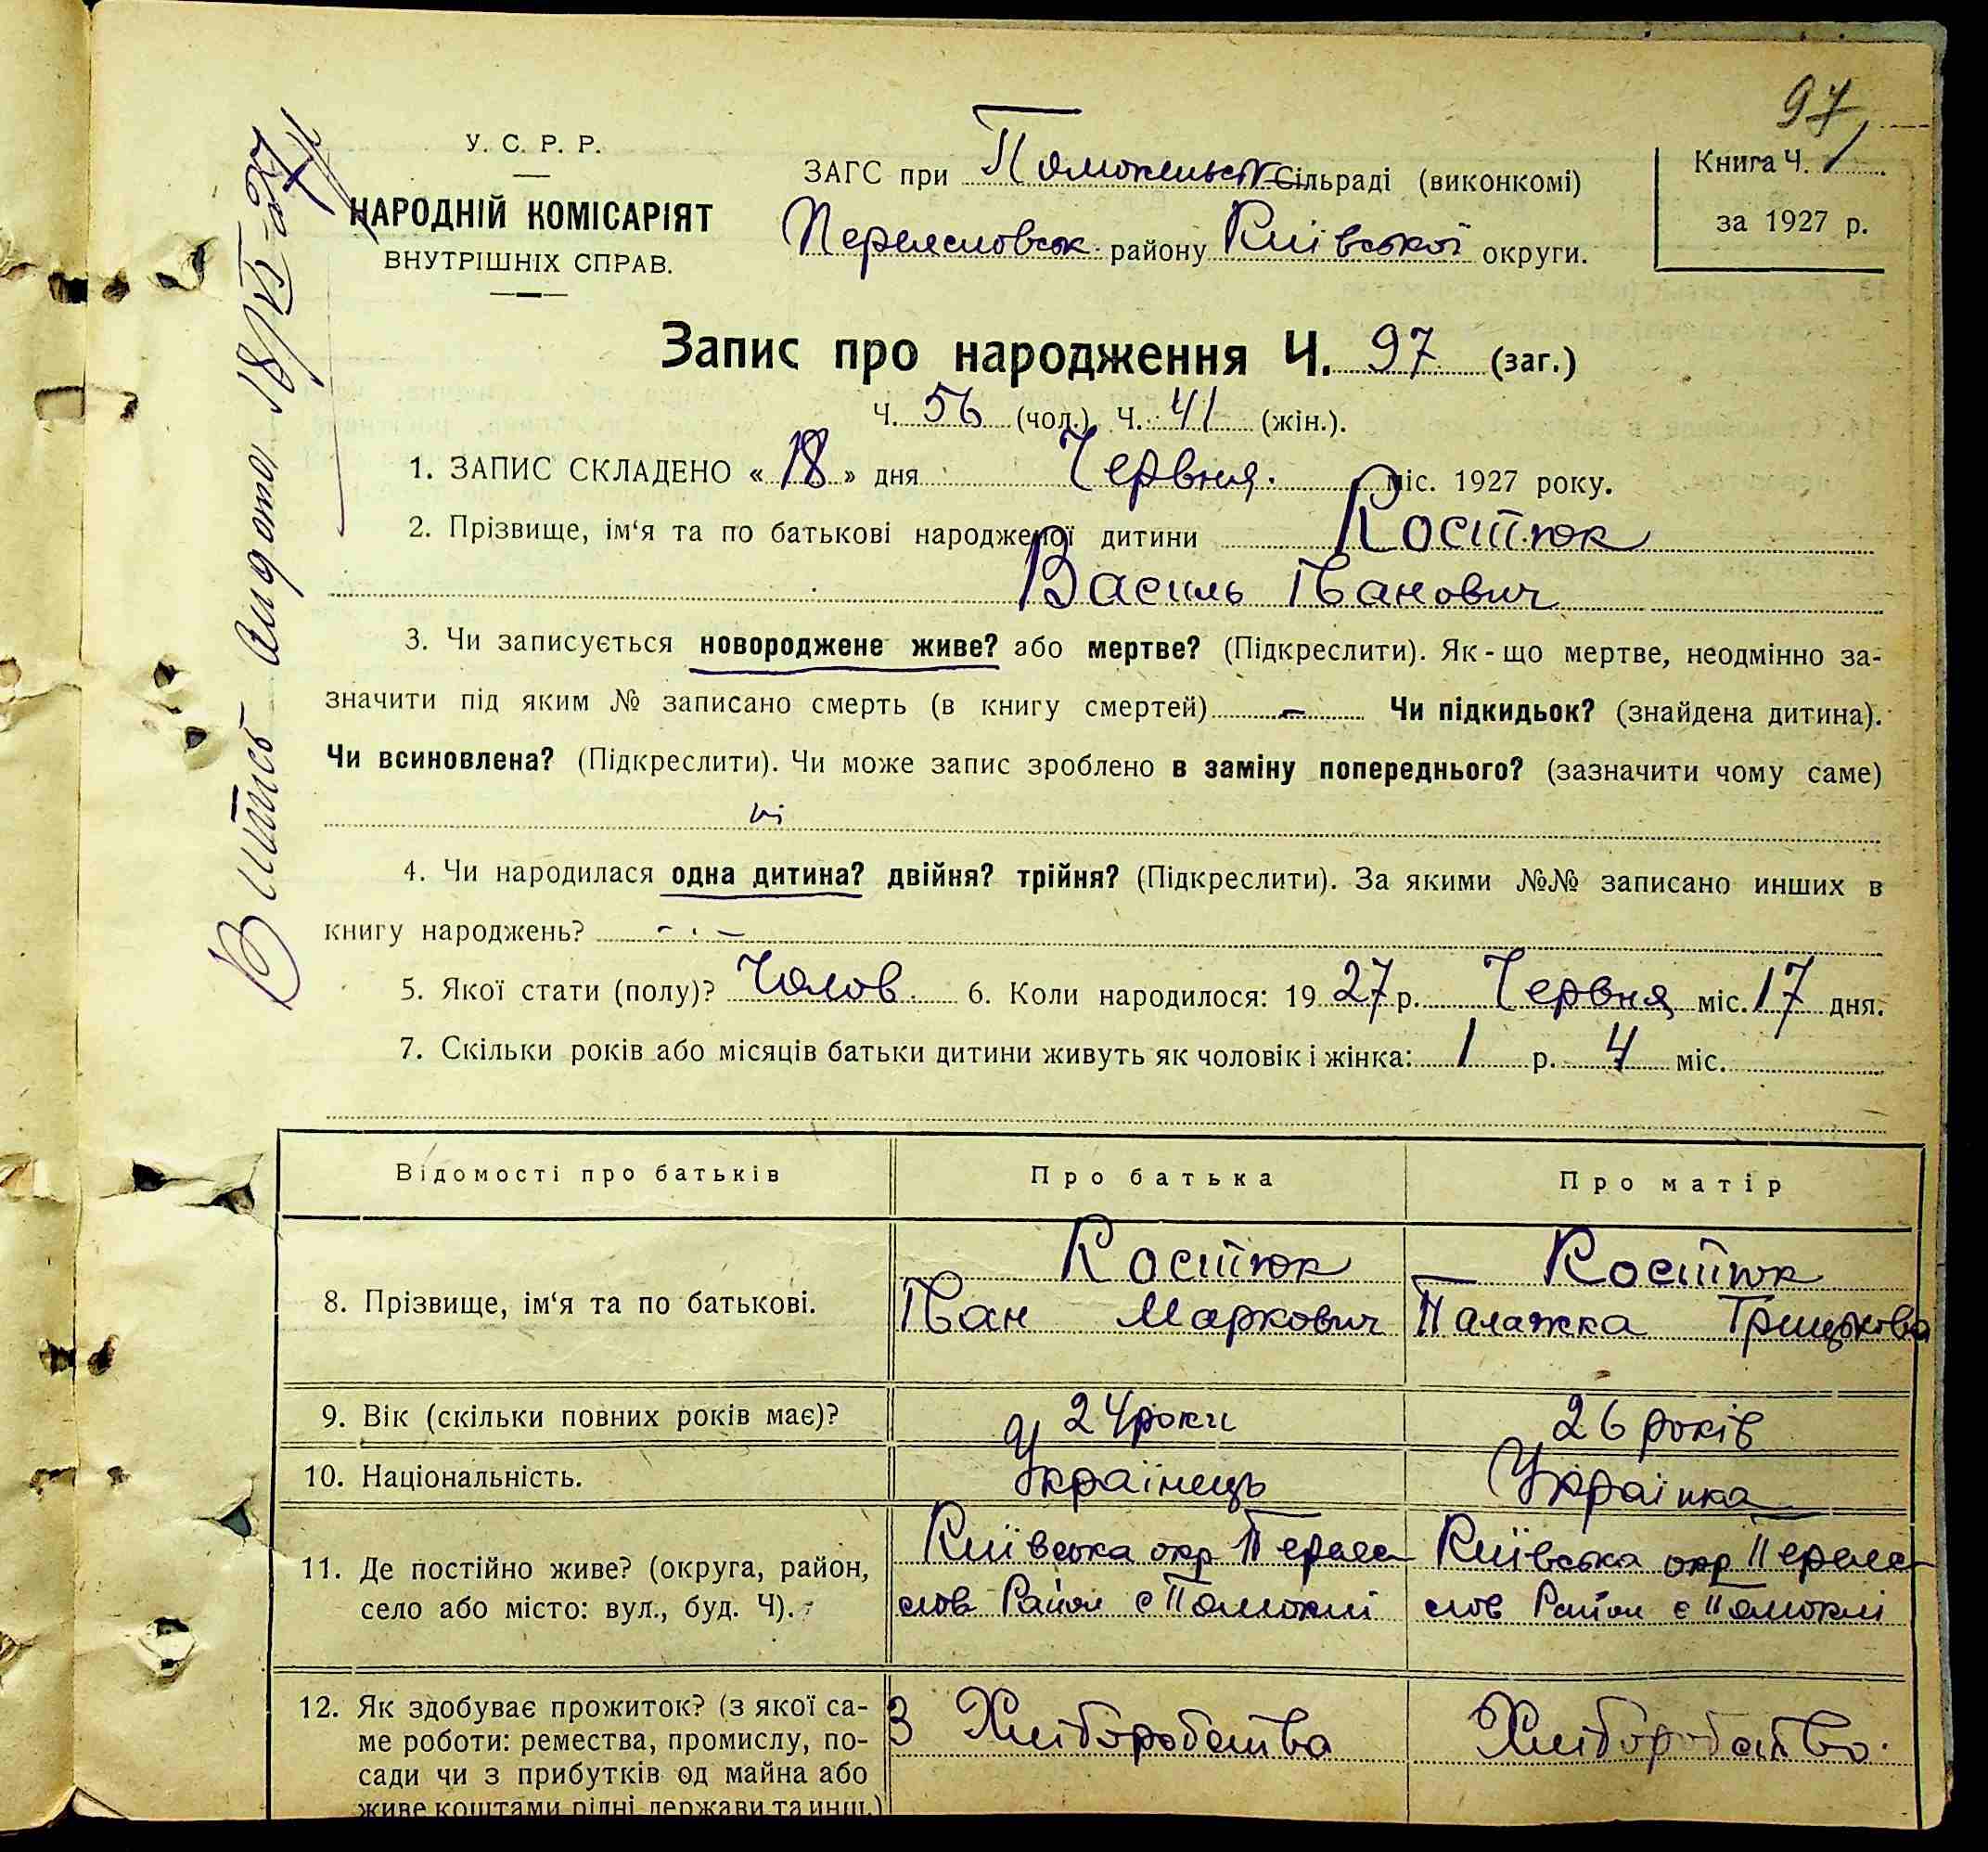 97
У. С. Р. Р.
НАРОДНІЙ КОМІСАРІЯТ
ВНУТРІШНІХ СПРАВ.
ЗАГС при Помокельськ сільраді (виконкомі)
Переясловськ району Київської округи.
Книга Ч. 1
за 1927 р.
Запис про народження Ч. 97 (заг.)
Ч. 56 (чол.) Ч. 41 (жін.).
1. ЗАПИС СКЛАДЕНО « 18 » дня Червня. міс. 1927 року.
2. Прізвище, ім‘я та по батькові народженої дитини Костюк
Василь Іванович
3. Чи записується новороджене живе? або мертве? (Підкреслити). Як-що мертве, неодмінно за-
значити під яким № записано смерть (в книгу смертей) – Чи підкидьок? (знайдена дитина).
Чи всиновлена? (Підкреслити). Чи може запис зроблено в заміну попереднього? (зазначити чому саме)
ні
4. Чи народилася одна дитина? двійня? трійня? (Підкреслити). За якими №№ записано инших в
книгу народжень? – · –
5. Якої стати (полу)? Чолов. 6. Коли народилося: 19 27 р. Червня міс. 17 дня.
7. Скільки років або місяців батьки дитини живуть як чоловік і жінка: 1 р. 4 міс.
Випись видата 18/VI-27
Відомості про батьків Про батька Про матір
8. Прізвище, ім‘я та по батькові.
Костюк
Іван Маркович
Костюк
Палажка Грицькова
9. Вік (скільки повних років має)? 24 роки 26 років
10. Національність. Українець Українка
11. Де постійно живе? (округа, район,
село або місто: вул., буд. Ч).
Київська окр Перея
слов Район с Помоклі
Київська окр Перея
слов Район с Помоклі
12. Як здобуває прожиток? (з якої са-
ме роботи: ремества, промислу, по-
сади чи з прибутків од майна або
живе коштами рідні держави та инш.)
З Хліборобства
Хліборобство.